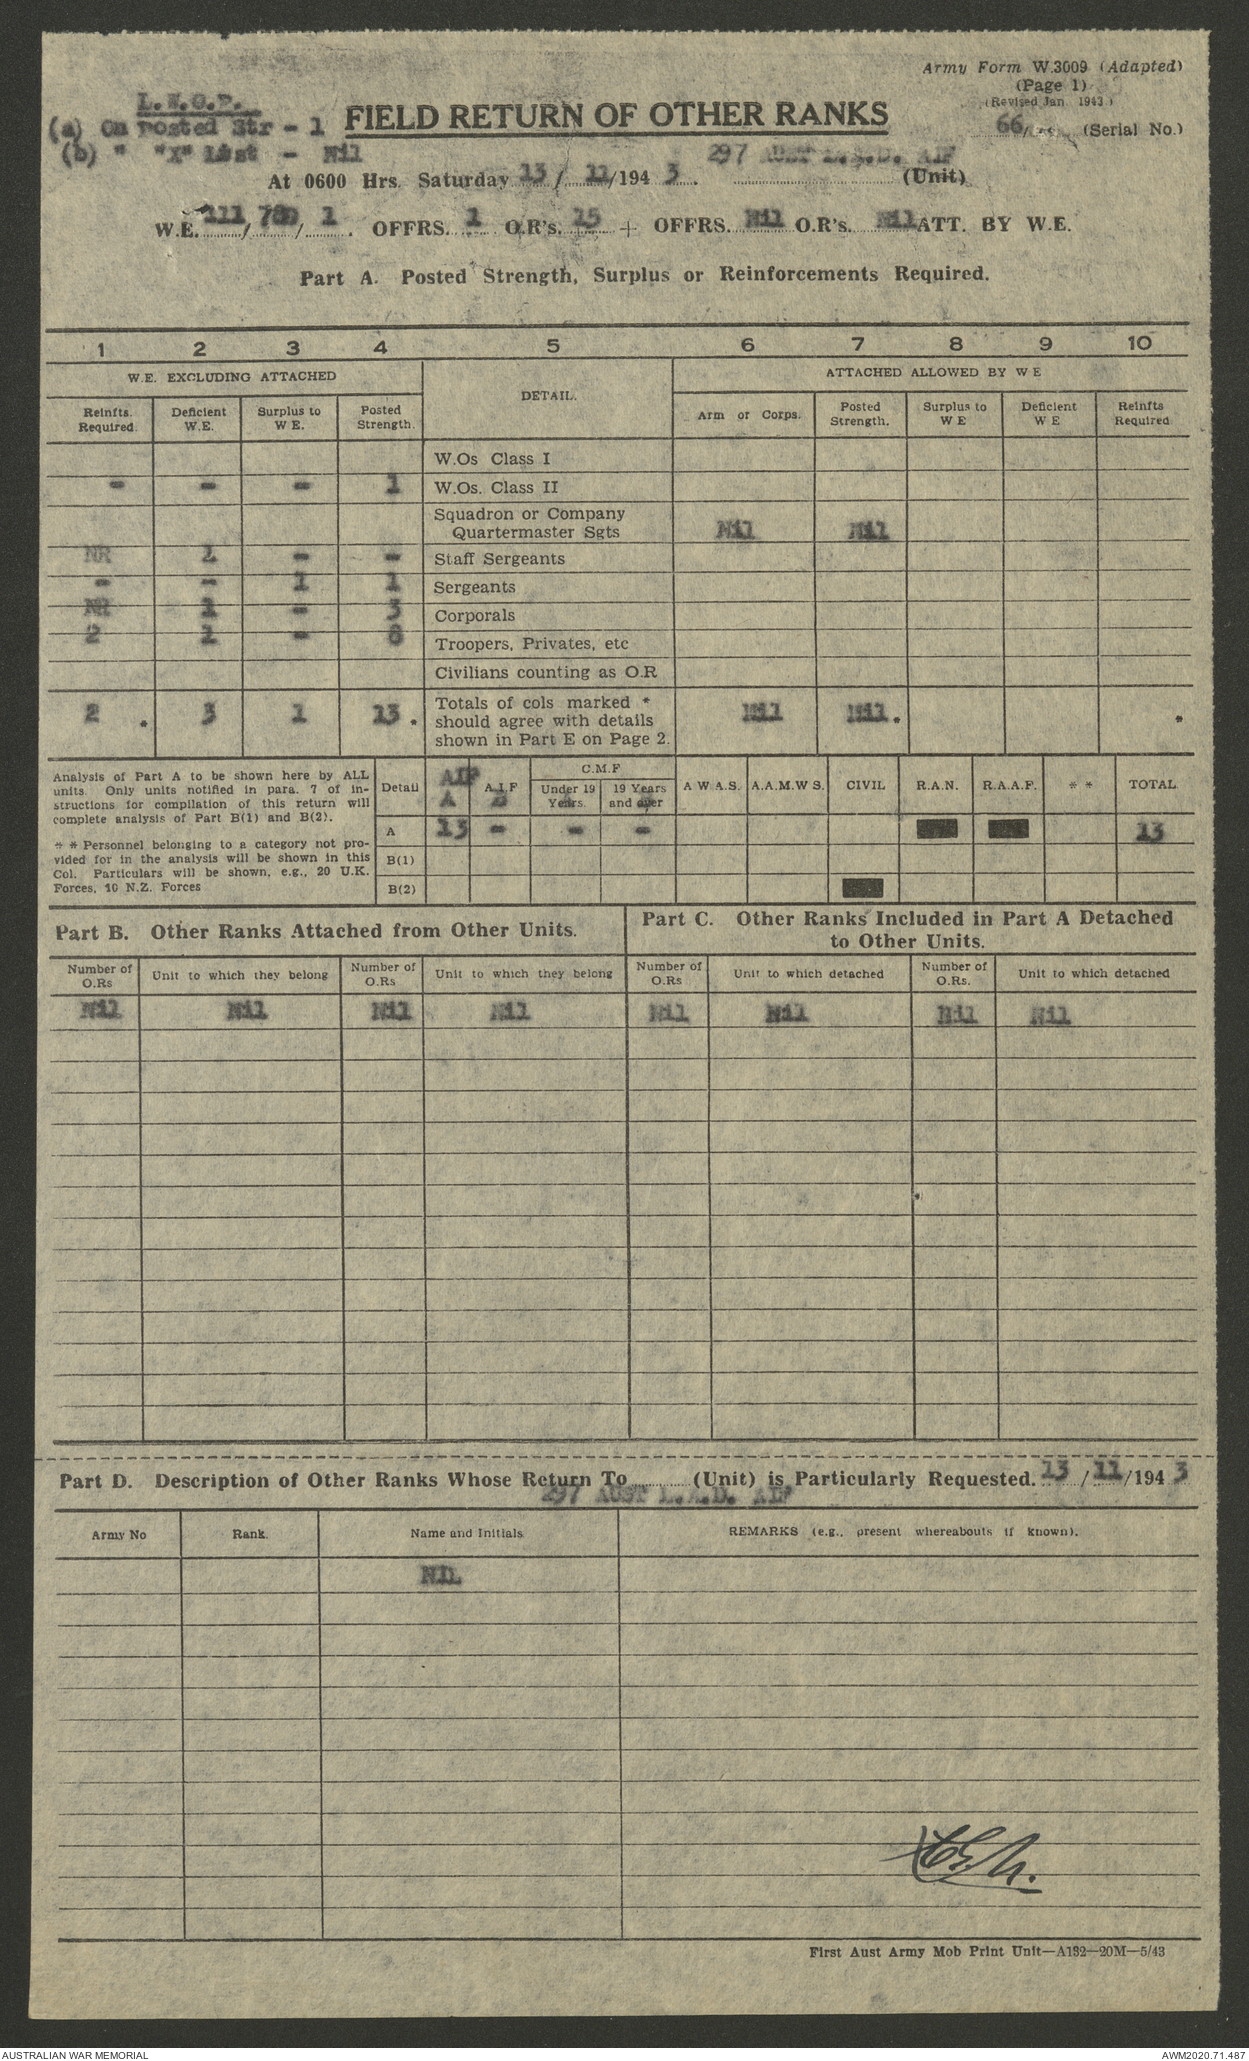 Army Form W.3009 (Adapted)
(Page 1)
(Revised Jan 1943.)
66/ (Serial No.)
(a) On Posted Str - 1
(b) " "X" List - Nil
FIELD RETURN OF OTHER RANKS
297 AUST L.A.D. AIF
At 0600 Hrs. Saturday 13/11/1943. (Unit)
W.E. 111/ / 1. OFFRS. 1 O.R's. 15 + OFFRS. Nil O.R's. Nil ATT. BY W.E.
Part A. Posted Strength, Surplus or Reinforcements Required.
1 2 3 4 5 6 7 8 9 10
W.E. EXCLUDING ATTACHED DETAIL. ATTACHED ALLOWED BY W E
Reinfts. Required. Deficient W.E. Surplus to W E. Posted Strength. Arm or Corps. Posted Strength. Surplus to W E Deficient W E Reinfts Required
W.Os Class I
- - - 1 W.Os. Class II
Squadron or Company
Quartermaster Sgts Nil Nil
NR 1 - - Staff Sergeants
- - 1 1 Sergeants
NR 1 - 3 Corporals
2 1 - 8 Troopers, Privates, etc
Civilians counting as O.R
2 . 3 1 13 . Totals of cols marked * Nil Nil .
should agree with details
shown in Part E on Page 2.
Analysis of Part A to be shown here by ALL
units. Only units notified in para. 7 of in-
structions for compilation of this return will
complete analysis of Part B(1) and B(2).
* * Personnel belonging to a category not pro-
vided for in the analysis will be shown in this
Col. Particulars will be shown, e.g., 20 U.K.
Forces, 10 N.Z. Forces
Detail AIF A A.I.F C.M.F Under 19 Years. 19 Years and over A W A.S. A.A.M.W S. CIVIL R.A.N. R.A.A.F. * * TOTAL
A 13 - - - 13
B(1)
B(2)
Part B. Other Ranks Attached from Other Units.
Part C. Other Ranks Included in Part A Detached
to Other Units.
Number of O.Rs Unit to which they belong Number of O.Rs Unit to which they belong Number of O.Rs Unit to which detached Number of O.Rs. Unit to which detached
Nil Nil Nil Nil Nil Nil Nil Nil
Part D. Description of Other Ranks Whose Return To (Unit) is Particularly Requested. 13/11/1943
297 AUST L.A.D. AIF
Army No Rank. Name and Initials REMARKS (e.g., present whereabouts if known).
NIL
First Aust Army Mob Print Unit—A132—20M—5/43
AUSTRALIAN WAR MEMORIAL
AWM2020.71.487